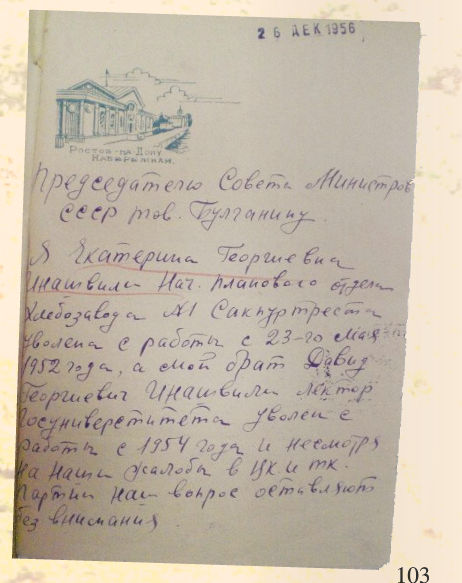 26 ДЕК 1956
Ростов-на-Дону
Набережная.
Председателю Совета Министров
СССР тов. Булганину.
Я Екатерина Георгиевна
Инашвили Нач. планового отдела
Хлебозавода №1 Сакпуртреста
уволена с работы с 23-го мая
1952 года, а мой брат Давид
Георгиевич Инашвили лектор
Госуниверститета уволен с
работы с 1954 года и несмотря
на наши жалобы в ЦК и тк.
Партии наш вопрос оставляют
без внимания
103